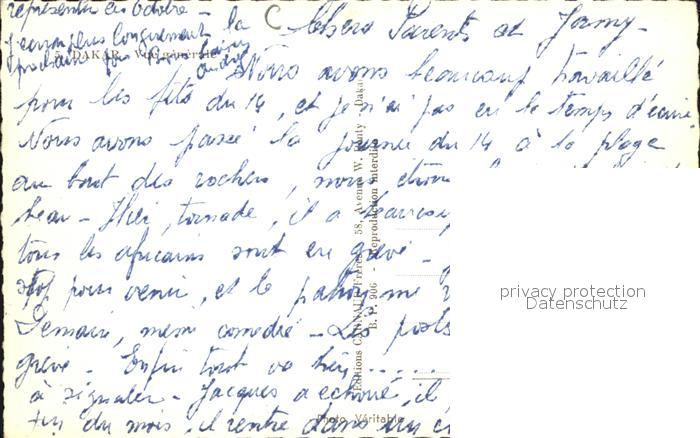 représenter en octobre -
j'écrirai plus longuement la
prochaine fois
DAKAR - Vue générale
Chers Parents et Jamy -
Nous avons beaucoup travaillé
pour les fêtes du 14, et je n'ai pas eu le temps d'écrire.
Nous avons passé la journée du 14 à la plage
au bout des rochers, nous étions
beau - Hier, tornade, il a
tous les africains sont en grève -
stop pour venir, et le patron me
Demain, même comédie - Les posts
grève - Enfin tout va bien .....
à signaler - Jacques a échoué, il
fin du mois, il rentre dans un
Editions CARNAUD Frères, 58, Avenue W. Ponty - Dakar
B. P. 906 - Reproduction interdite
Photo Véritable
privacy protection
Datenschutz